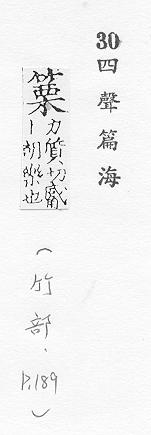 30四聲篇海
篥力質切觱
｜胡樂也
（竹部、P.189）